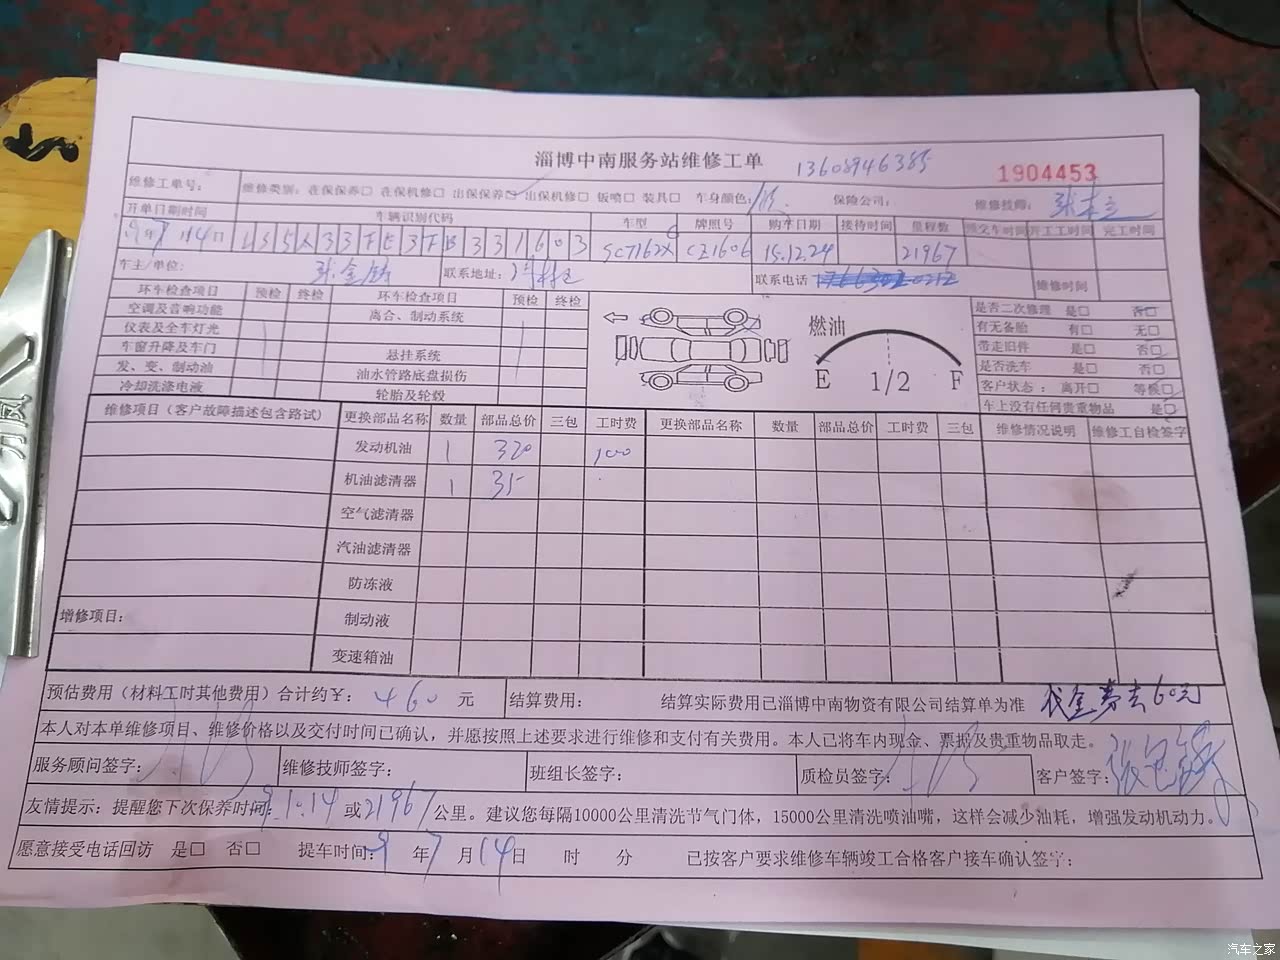 淄博中南服务站维修工单 13608946385
1904453
维修工单号: 维修类别: 在保保养□ 在保机修□ 出保保养□ 出保机修□ 钣喷□ 装具□ 车身颜色: 保险公司: 维修技师:
开单日期时间 车辆识别代码 车型 牌照号 购车日期 接待时间 里程数 预交车时间 开工工时间 完工时间
年7月14日 LS5A33FE3FB331603 CZ1606 15.12.24 21967
车主/单位: 联系地址: 联系电话 维修时间
环车检查项目 预检 终检 环车检查项目 预检 终检
空调及音响功能 离合、制动系统
仪表及全车灯光
车窗升降及车门 悬挂系统
发、变、制动油 油水管路底盘损伤
冷却洗涤电液 轮胎及轮毂
燃油
E 1/2 F
是否二次修理 是□ 否□
有无备胎 有□ 无□
带走旧件 是□ 否□
是否洗车 是□ 否□
客户状态: 离开□ 等候□
车上没有任何贵重物品 是□
维修项目(客户故障描述包含路试) 更换部品名称 数量 部品总价 三包 工时费 更换部品名称 数量 部品总价 工时费 三包 维修情况说明 维修工自检签字
发动机油 1 320 100
机油滤清器 1 35
空气滤清器
汽油滤清器
防冻液
增修项目: 制动液
变速箱油
预估费用(材料工时其他费用)合计约¥: 460 元 结算费用: 结算实际费用已淄博中南物资有限公司结算单为准 代金券去60元
本人对本单维修项目、维修价格以及交付时间已确认，并愿按照上述要求进行维修和支付有关费用。本人已将车内现金、票据及贵重物品取走。
服务顾问签字: 维修技师签字: 班组长签字: 质检员签字: 客户签字:
友情提示: 提醒您下次保养时间: 或21967公里。建议您每隔10000公里清洗节气门体，15000公里清洗喷油嘴，这样会减少油耗，增强发动机动力。
愿意接受电话回访 是□ 否□ 提车时间: 9年7月14日 时 分 已按客户要求维修车辆竣工合格客户接车确认签字:
汽车之家